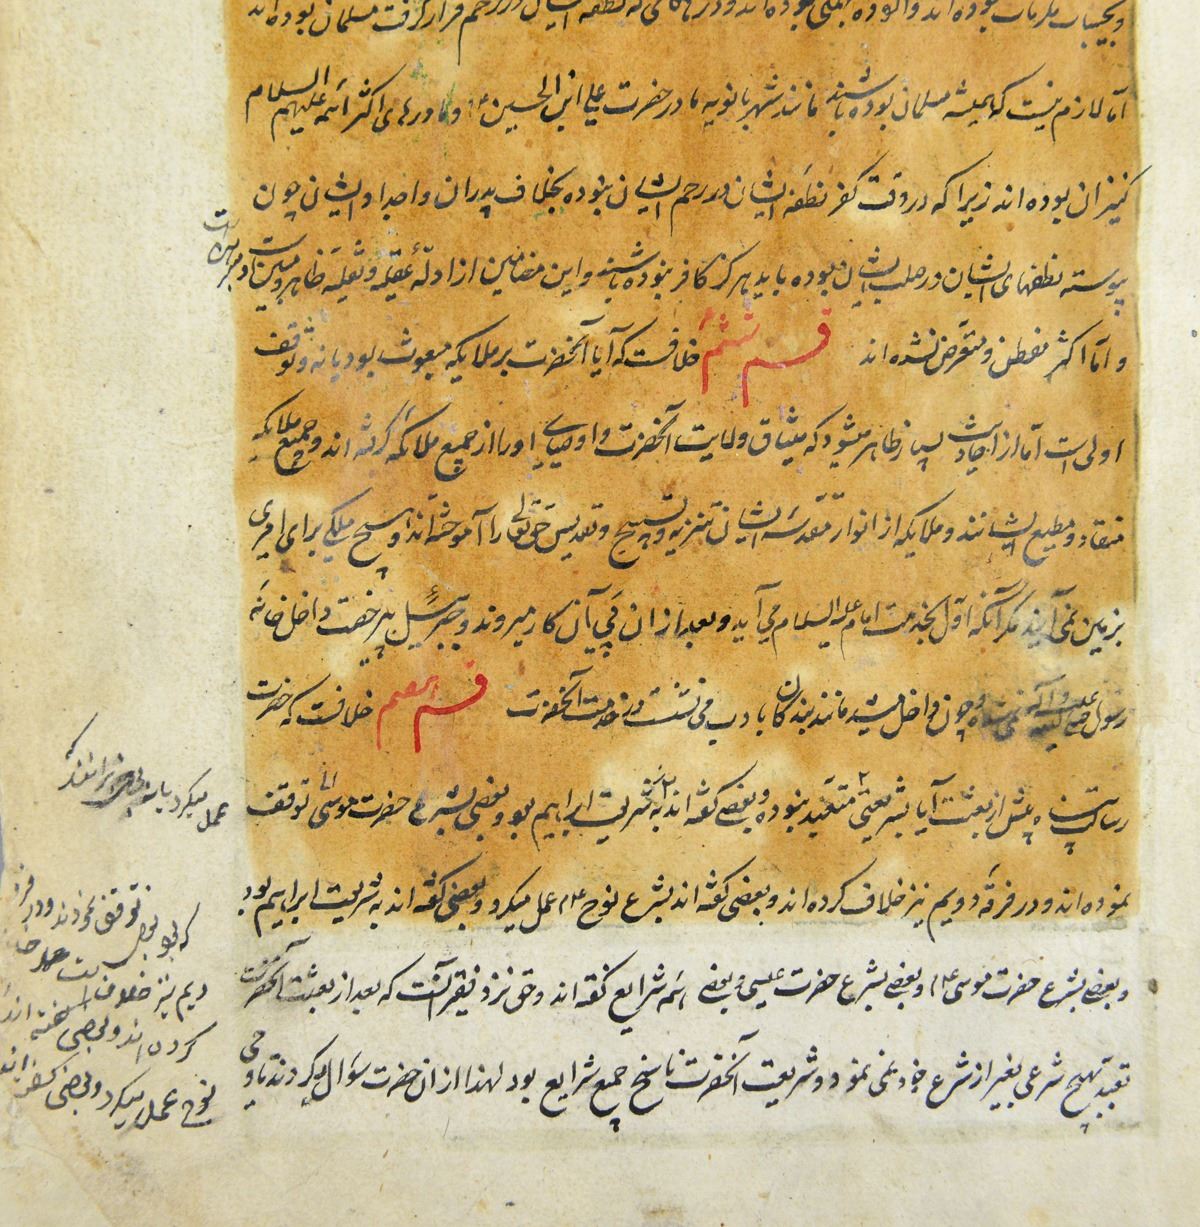 اما لازم نیست که همیشه مسلمان بوده باشند مانند شهربانویه مادر حضرت علی ابن الحسین ع و مادرهای اکثر ائمه علیهم السلام
کنیزان بوده اند زیرا که در وقت کفر نطفه ایشان در رحم ایشان نبوده بخلاف پدران و اجداد ایشان چون
پیوسته نطفهای ایشان در صلب ایشان بوده باید هرگز کافر نبوده باشند و این مضامین از ادله عقلیه و نقلیه ظاهر و مبین است
و اما اکثر متفطن و متعرض نشده اند قسم ششم خلافست که آیا آنحضرت بر ملایکه مبعوث بود یا نه و توقف
اولی است اما از احادیث بسیار ظاهر میشود که میثاق ولایت آنحضرت و اوصیای او را از جمیع ملائکه گرفته اند و جمیع ملایکه
منقاد و مطیع ایشانند و ملایکه از انوار مقدسه ایشان تنزیه و تسبیح و تقدیس حق تعالی را آموخته اند و هیچ ملکی برای امری
بزمین نمی آیند مگر آنکه اول بخدمت امام علیه السلام می آید و بعد از ان پی آن کار میروند و جبرئیل بیرخصت داخل خانه
رسول صلی علیه و آله نمیشد و چون داخل میشد مانند بندگان با ادب می نشست در خدمت آنحضرت قسم هفتم خلافست که حضرت
رسالت پناه پیش از بعثت آیا بشریعتی متعبد بنوده و بعضی گفته اند که بشریعت ابراهیم بود و بعضی بشرع حضرت موسی اما توقف
نموده اند و در فرقه دویم نیز خلاف کرده اند و بعضی گفته اند بشرع نوح ع م عمل میکرد و بعضی گفته اند به شریعت ابراهیم بود
و بعضی بشرع حضرت موسی ع م و بعضی بشرع حضرت عیسی و بعضی بهمه شرایع گفته اند و حق نزد فقیر آنست که بعد از بعثت آنحضرت
تعبد بهیچ شرعی بغیر از شرع خود نمی نمود و شریعت آنحضرت ناسخ جمیع شرایع بود لهذا از ان حضرت سوال میکردند تا وحی
عمل میکرد یا نه
که بود بعضی توقف نمودند و در فرقه
دیم نیز خلافست
کرده اند و بعضی گفته اند
نوح عمل میکرد و بعضی گفته اند